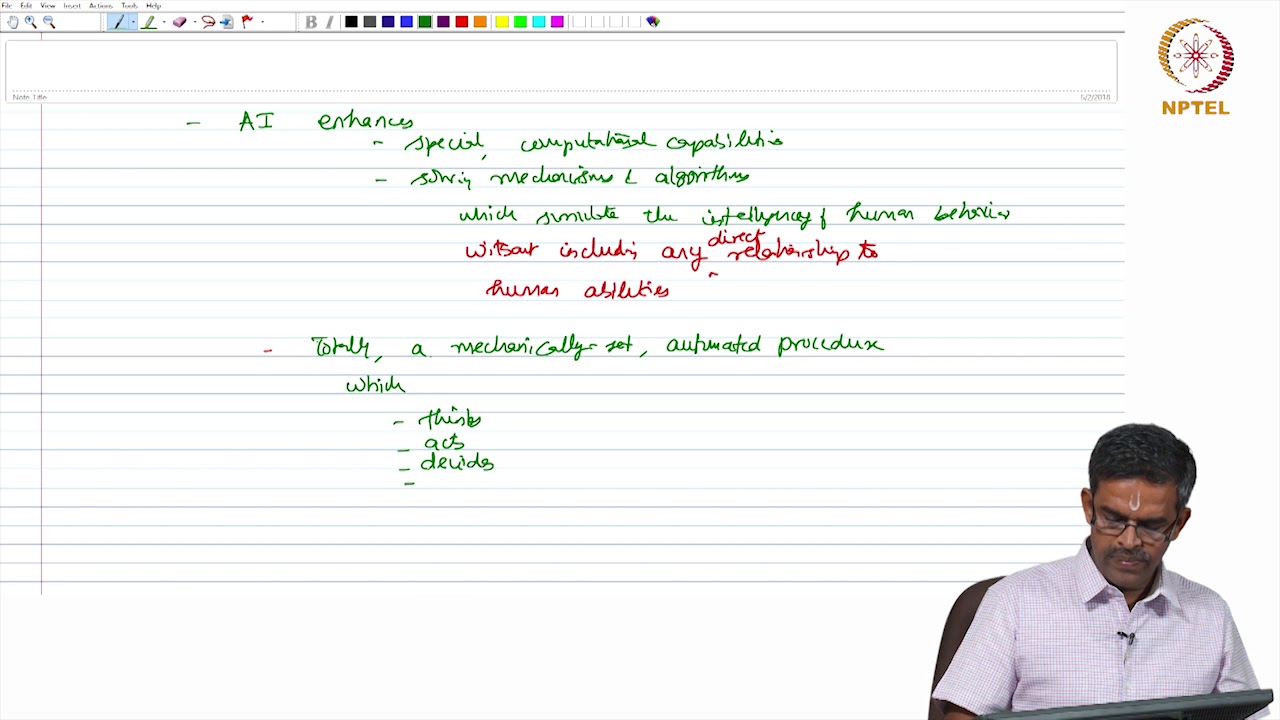 File Edit View Insert Actions Tools Help
B I
Note Title
5/2/2018
NPTEL
- AI enhances
- special, computational capabilities
- solving mechanisms & algorithms
which simulate the intelligency of human behavior
without including any direct relationship to
human abilities
- Totally, a mechanically-set, automated procedure
which
- thinks
- acts
- decides
-